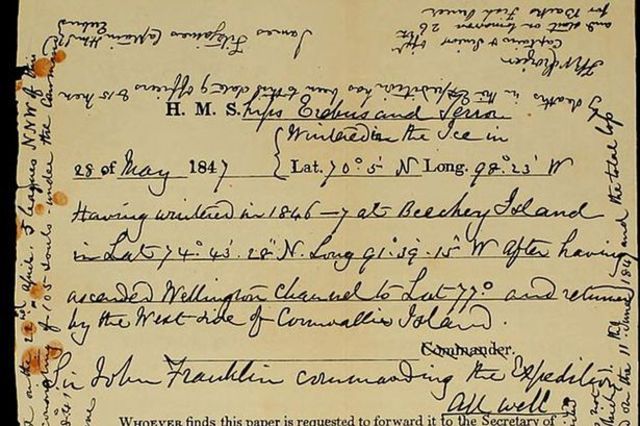 H. M. Ships Erebus and Terror
Wintered in the Ice in
28 of May 1847 { Lat. 70° 5' N Long. 98° 23' W
Having wintered in 1846–7 at Beechey Island
in Lat 74° 43' 28" N. Long 91° 39' 15" W After having
ascended Wellington Channel to Lat 77° and return
by the West side of Cornwallis Island.
Commander.
Sir John Franklin commanding the Expedition.
All well
WHOEVER finds this paper is requested to forward it to the Secretary of
by deaths in the Expedition has been to this date 9 officers & 15 men
James Fitzjames Captain HMS
Erebus
Crozier
Captain & Senior Offr
and start on tomorrow 26th
for Backs Fish River
on the 22nd April. 5 leagues NNW of this
of 105 souls under the Command
and the total loss
on the 11th June 1847